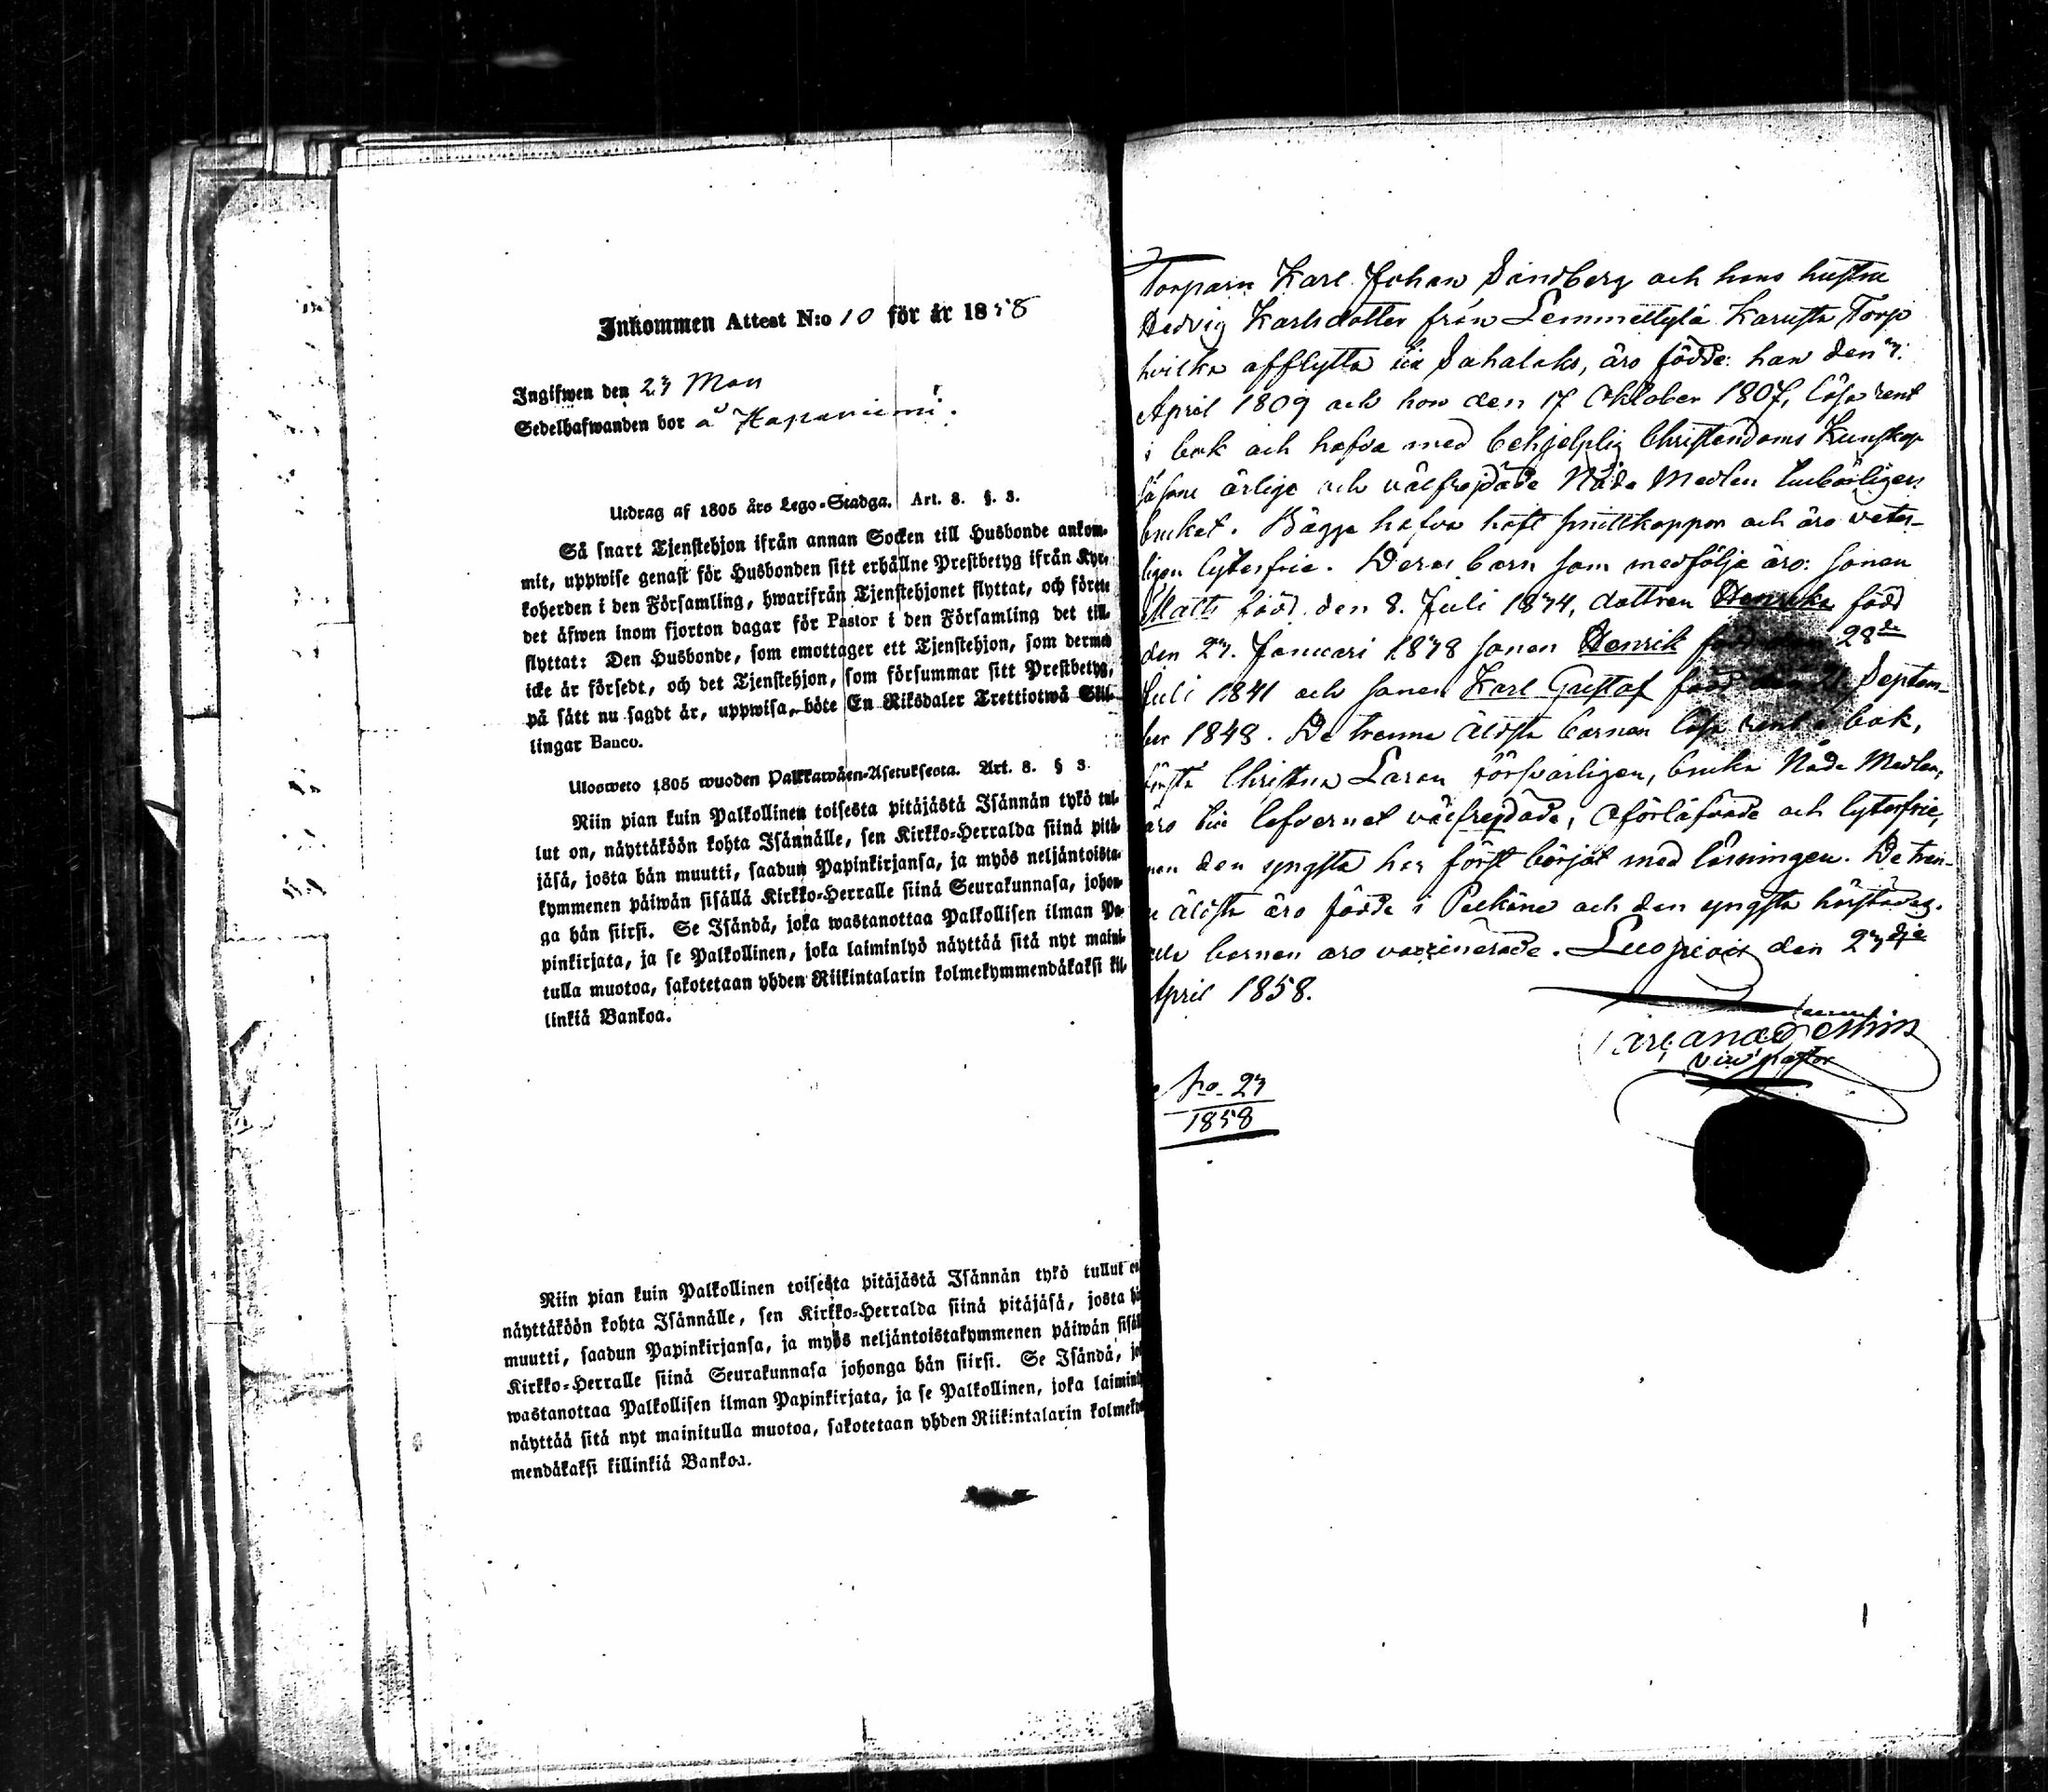 Inkommen Attest N:o 10 för år 1858
Ingifwen den 23 Maii
Sedelhafwanden bor å Haapaniemi.
Utdrag af 1805 års Lego-Stadga. Art. 8. §. 3.
Så snart Tjenstehjon ifrån annan Socken till Husbonde ankom-
mit, uppwise genast för Husbonden sitt erhållne Prestbetyg ifrån Kyr-
koherden i den Församling, hwarifrån Tjenstehjonet flyttat, och förete
det äfwen inom fjorton dagar för Pastor i den Församling det till-
flyttat: Den Husbonde, som emottager ett Tjenstehjon, som dermed
icke är försedt, och det Tjenstehjon, som försummar sitt Prestbetyg,
på sätt nu sagdt är, uppwisa, böte En Riksdaler Trettiotwå Skil-
lingar Banco.
Ulosweto 1805 wuoden Palkkawäen-Asetuksesta. Art. 8. § 3.
Niin pian kuin Palkollinen toisesta pitäjästä Isännän tykö tul-
lut on, näyttäköön kohta Isännälle, sen Kirkko-Herralda siinä pitä-
jäsä, josta hän muutti, saadun Papinkirjansa, ja myös neljäntoista-
kymmenen päiwän sisällä Kirkko-Herralle siinä Seurakunnasa, johon-
ga hän siirsi. Se Isändä, joka wastanottaa Palkollisen ilman Pa-
pinkirjata, ja se Palkollinen, joka laiminlyö näyttää sitä nyt maini-
tulla muotoa, sakotetaan yhden Riikintalarin kolmekymmendäkaksi kil-
linkiä Bankoa.
Niin pian kuin Palkollinen toisesta pitäjästä Isännän tykö tullut on
näyttäköön kohta Isännälle, sen Kirkko-Herralda siinä pitäjäsä, josta hän
muutti, saadun Papinkirjansa, ja myös neljäntoistakymmenen päiwän sisäl
Kirkko-Herralle siinä Seurakunnasa johonga hän siirsi. Se Isändä, jo
wastanottaa Palkollisen ilman Papinkirjata, ja se Palkollinen, joka laiminly
näyttää sitä nyt mainitulla muotoa, sakotetaan yhden Riikintalarin kolmeky
mendäkaksi killinkiä Bankoa.
Torparn Karl Johan Sandberg och hans hustru
Hedvig Karlsdotter från Lemmettylä Karusta Torp
hvilka afflytta till Sahalaks, äro födde: han den 3.
April 1809 och hon den 17 Oktober 1807, läsa rent
i bok och hafva med behjelplig Christendoms Kunskap
såsom ärlige och välfrejdade Nåde Medlen
brukat. Bägge hafva haft smittkoppor och äro veter-
ligen lytesfrie. Deras barn som medfölja äro: sonen
Matts född den 8. Juli 1834, dottren Henrika född
den 23. Januari 1838 sonen Henrik född den 28de
Juli 1841 och sonen Karl Gustaf född den Septem-
ber 1848. De trenne äldsta barnen läsa rent i bok,
Christna Läran försvarligen, bruka Nåde Medlen,
äro till lefvernet välfrejdade, oförlofvade och lytesfrie,
men den yngsta har först börjat med läsningen. De tren-
ne äldsta äro födde i Pelkäne och den yngsta härstädes.
Alla barnen äro vaccinerade. Luopiois den 23dje
April 1858.
vice pastor
No. 23
1858